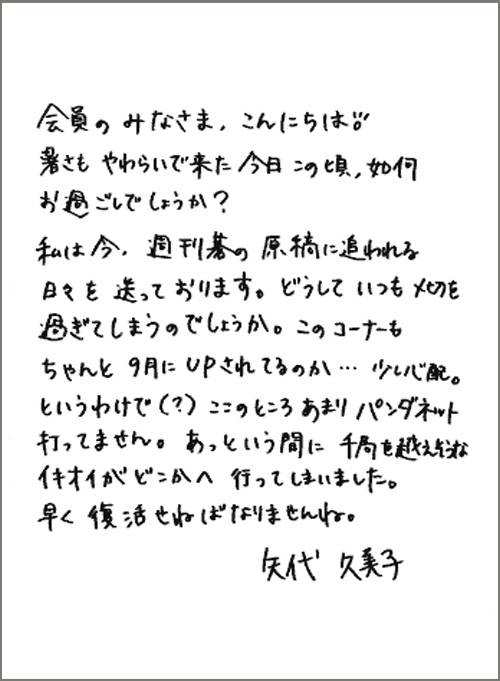 会員の みなさま、こんにちは!!
暑さも やわらいで来た 今日 この頃、如何
お過ごしでしょうか？
私は今、週刊碁の 原稿に追われる
日々を 送って おります。どうして いつも 〆切を
過ぎてしまうのでしょうか。このコーナーも
ちゃんと 9月に UPされてるのか… 少し心配。
というわけで(？) ここのところ あまり パンダネット
打ってません。あっという間に 千局を越えそうな
イキオイが どこかへ 行ってしまいました。
早く 復活せねばなりませんね。
矢代 久美子